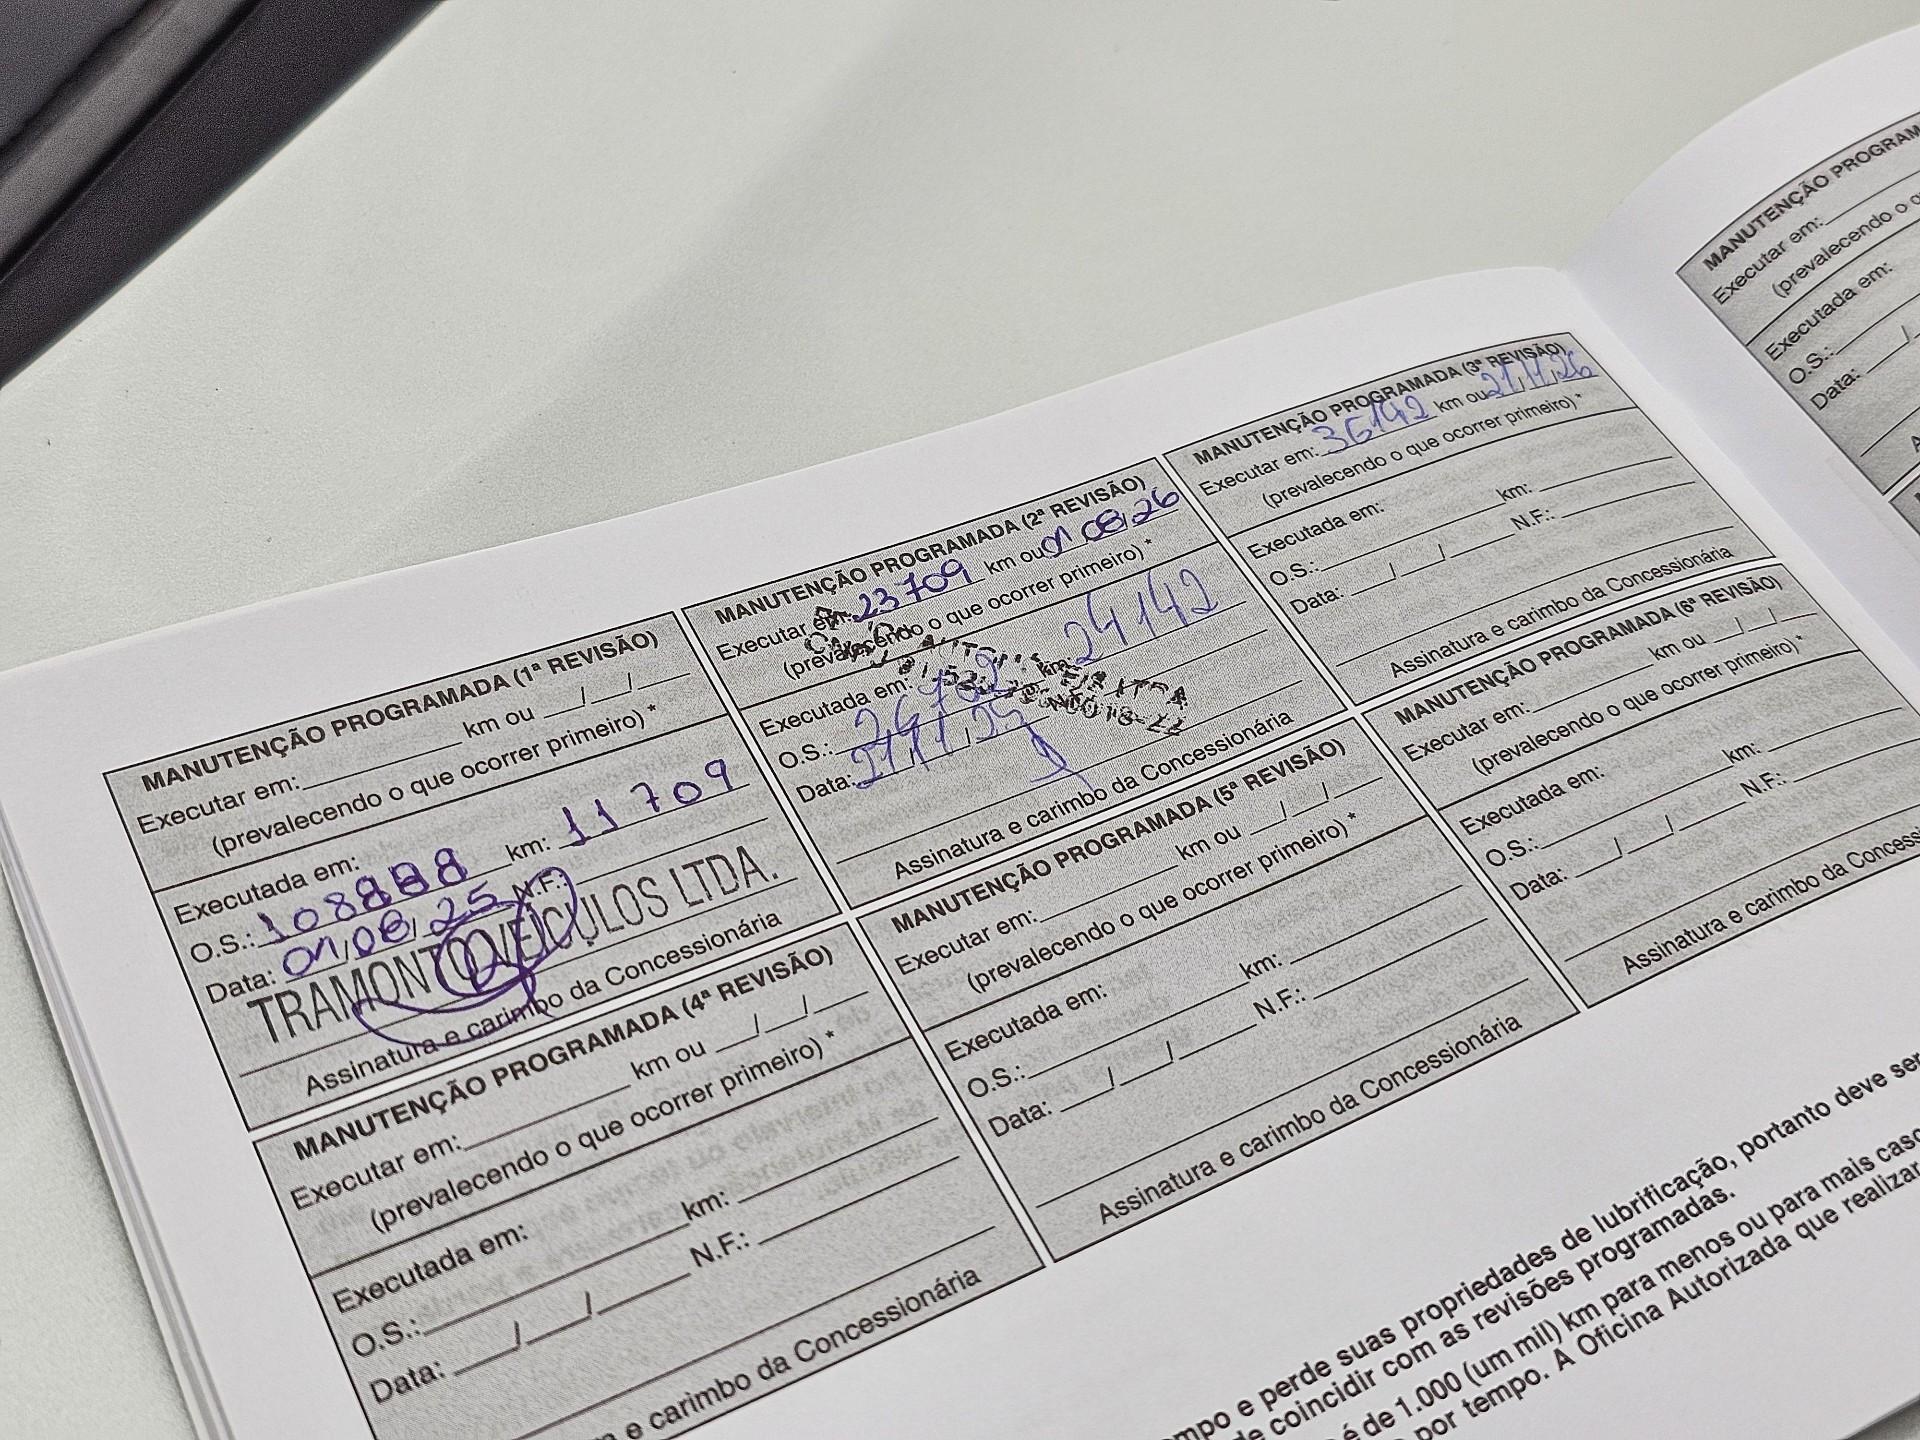 MANUTENÇÃO PROGRAMADA (1ª REVISÃO)
Executar em: km ou / /
(prevalecendo o que ocorrer primeiro) *
Executada em: km: 11709
O.S.: 108888 N.F.:
Data: 01/08/25
TRAMONTO VEÍCULOS LTDA.
Assinatura e carimbo da Concessionária
MANUTENÇÃO PROGRAMADA (2ª REVISÃO)
Executar em: 23709 km ou 01/08/26
(prevalecendo o que ocorrer primeiro) *
Executada em: km: 24142
O.S.:
Data: 21/11/25
Assinatura e carimbo da Concessionária
MANUTENÇÃO PROGRAMADA (3ª REVISÃO)
Executar em: 36142 km ou 21/11/26
(prevalecendo o que ocorrer primeiro) *
Executada em: km:
O.S.: N.F.:
Data: / /
Assinatura e carimbo da Concessionária
MANUTENÇÃO PROGRAMADA (4ª REVISÃO)
Executar em: km ou / /
(prevalecendo o que ocorrer primeiro) *
Executada em: km:
O.S.: N.F.:
Data: / /
e carimbo da Concessionária
MANUTENÇÃO PROGRAMADA (5ª REVISÃO)
Executar em: km ou / /
(prevalecendo o que ocorrer primeiro) *
Executada em: km:
O.S.: N.F.:
Data: / /
Assinatura e carimbo da Concessionária
MANUTENÇÃO PROGRAMADA (6ª REVISÃO)
Executar em: km ou / /
(prevalecendo o que ocorrer primeiro) *
Executada em: km:
O.S.: N.F.:
Data: / /
Assinatura e carimbo da Concess
MANUTENÇÃO PROGRAM
Executar em:
(prevalecendo o q
Executada em:
O.S.:
Data: /
mpo e perde suas propriedades de lubrificação, portanto deve ser
de coincidir com as revisões programadas.
é de 1.000 (um mil) km para menos ou para mais caso
por tempo. A Oficina Autorizada que realizar